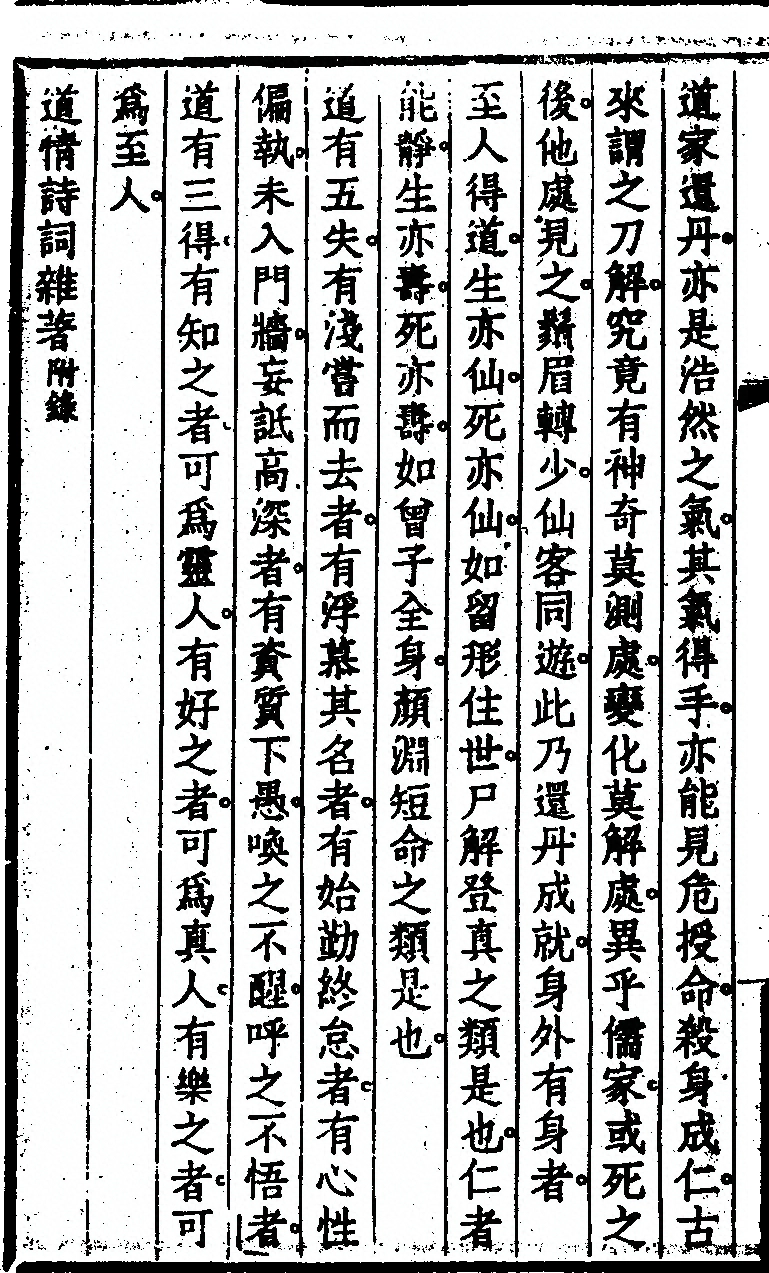 道家還丹。亦是浩然之氣。其氣得手。亦能見危授命。殺身成仁。古
來謂之刀解。究竟有神奇莫測處。變化莫解處。異乎儒家。或死之
後。他處見之。鬚眉轉少。仙客同遊。此乃還丹成就。身外有身者。
至人得道。生亦仙。死亦仙。如留形住世。尸解登真之類是也。仁者
能靜。生亦壽。死亦壽。如曾子全身。顏淵短命之類是也。
道有五失。有淺嘗而去者。有浮慕其名者。有始勤終怠者。有心性
偏執。未入門牆。妄詆高深者。有資質下愚。喚之不醒。呼之不悟者。
道有三得。有知之者。可為靈人。有好之者。可為真人。有樂之者。可
為至人。
道情詩詞雜著附錄